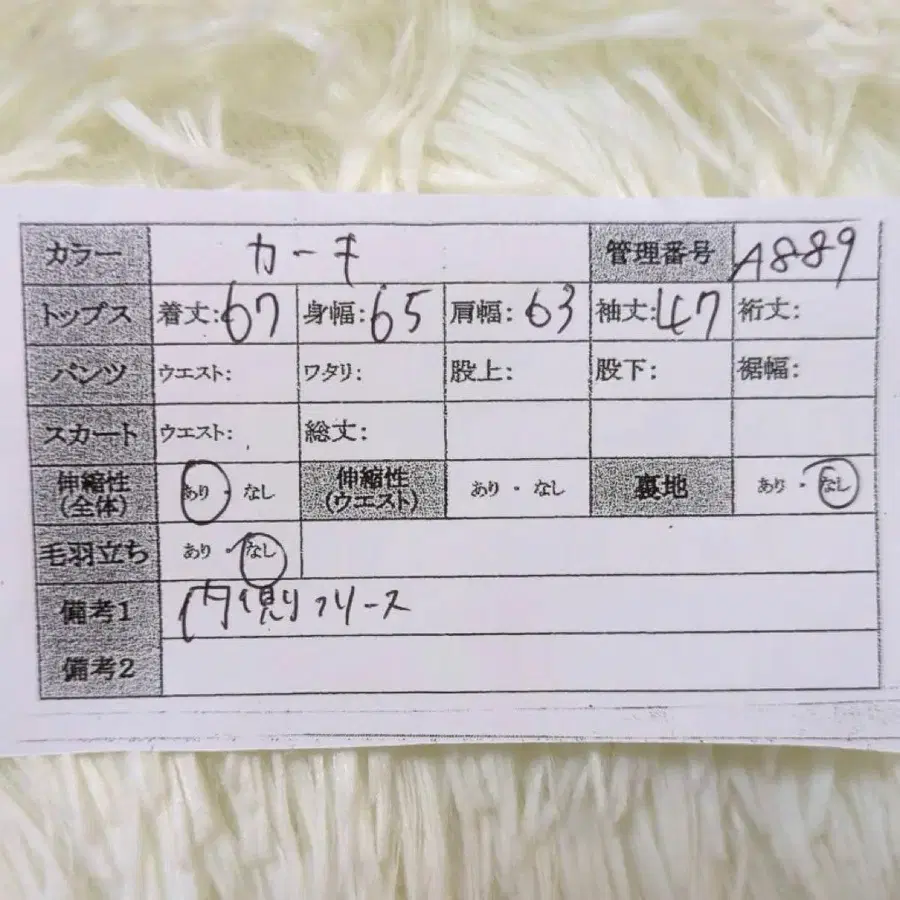 カラー カーキ 管理番号 A889
トップス 着丈:67 身幅:65 肩幅:63 袖丈:47 裄丈:
パンツ ウエスト: ワタリ: 股上: 股下: 裾幅:
スカート ウエスト: 総丈:
伸縮性 (全体) あり・なし 伸縮性 (ウエスト) あり・なし 裏地 あり・なし
毛羽立ち あり・なし
備考1 内側フリース
備考2